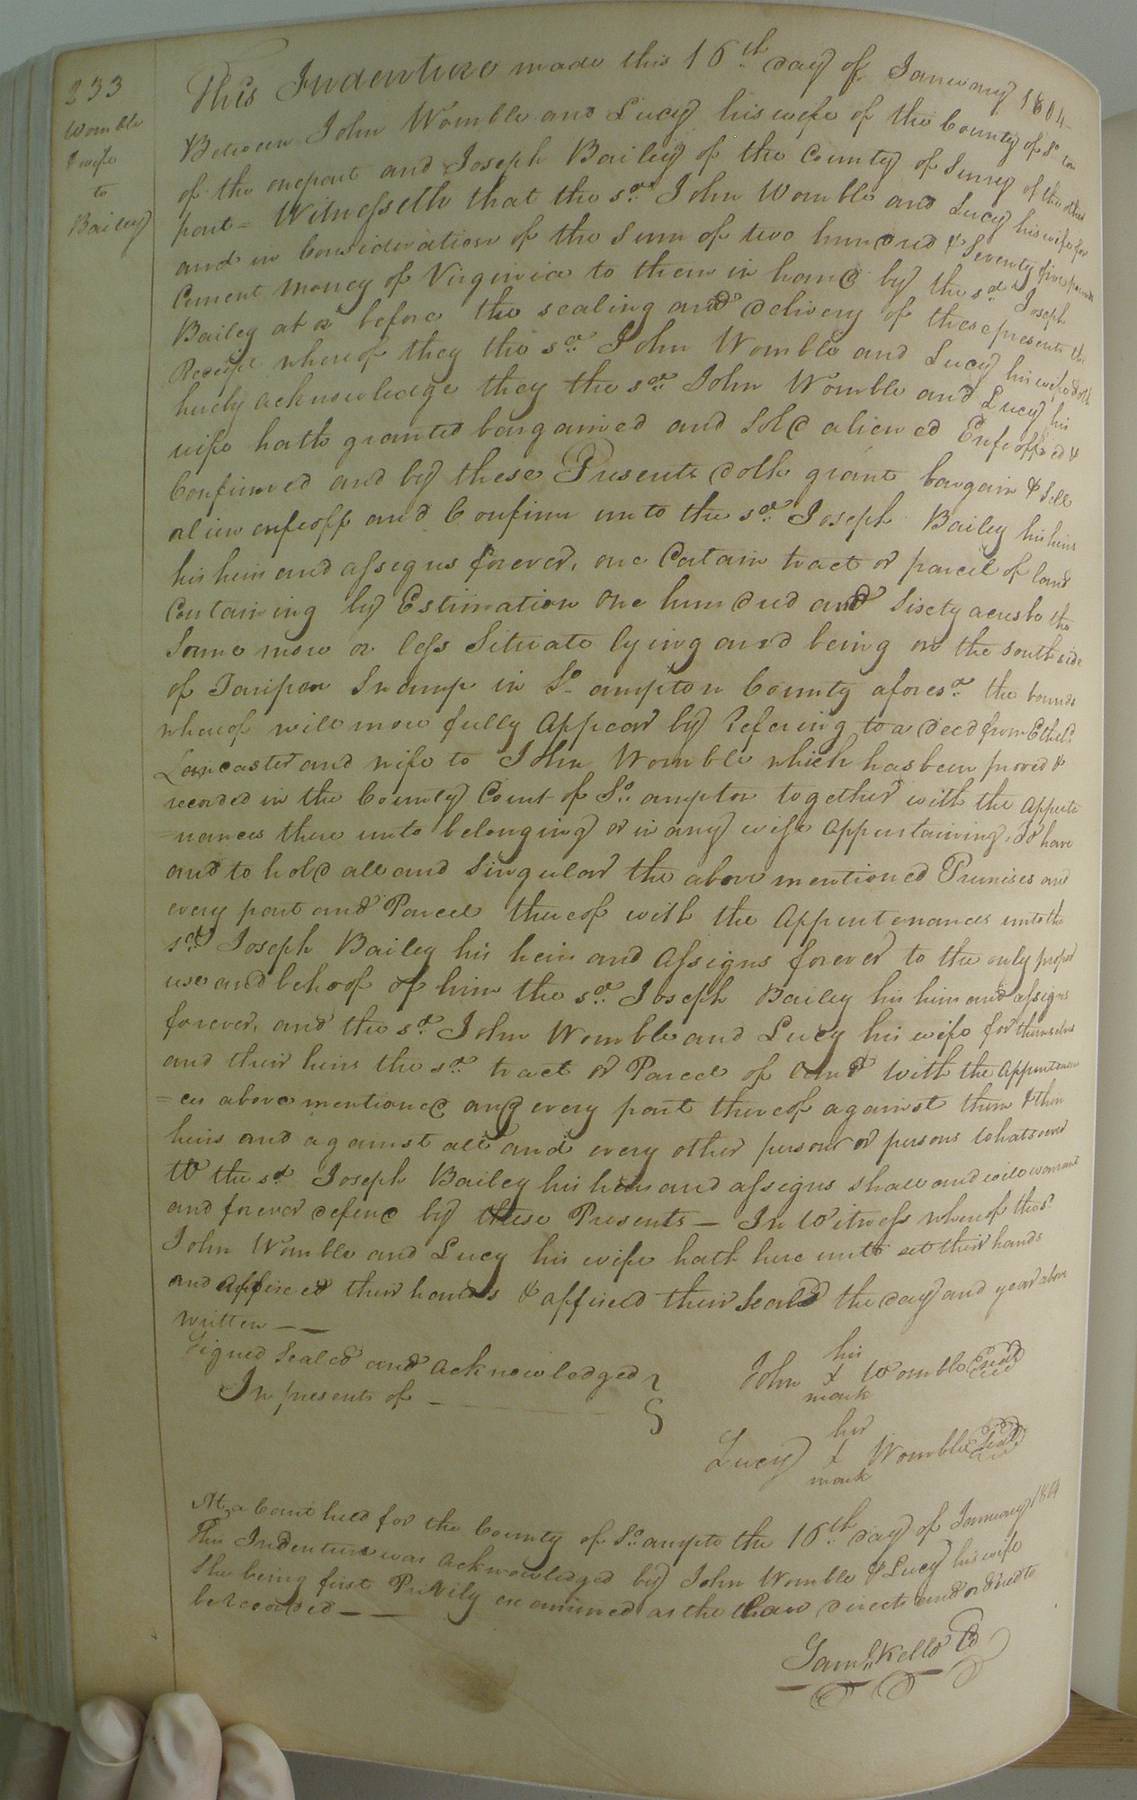 233
Womble
& wife
to
Bailey
This Indenture made this 16th day of January 1804
Between John Womble and Lucy his wife of the County of So ton
of the onepart and Joseph Bailey of the County of Surry of the other
part = Witnesseth that the sd. John Womble and Lucy his wife for
and in Consideration of the Sum of two hundred & Seventy five pounds
Current money of Virginia to them in hand by the sd Joseph
Bailey at or before the sealing and delivery of these presents the
Receipt whereof they the sd. John Womble and Lucy his wife doth
hereby acknowledge they the sd. John Womble and Lucy his
wife hath granted bargained and Sold aliened Enfeoffed &
Confirmed and by these Presents doth grant bargain & Sell
alien enfeoff and Confirm unto the sd. Joseph Bailey his heirs
his heirs and assigns forever, one Certain tract or parcel of land
Containing by Estimation One hundred and Sixty acres be the
Same more or less Situate lying and being on the south side
of Taripan Swamp in So ampton County aforesd. the bounds
whereof will more fully Appear by Refering to a deed from Etheld.
Lancaster and wife to John Womble which has been proved &
recorded in the County Court of So. ampton together with the Appurte
=nances there unto belonging or in any wise Appurtaining, To have
and to hold all and Singular the above mentioned Premises and
every part and Parcel thereof with the Appurtenances unto the
sd. Joseph Bailey his heirs and Assigns forever to the only proper
use and behoof of him the sd. Joseph Bailey his heirs and assigns
forever, and the sd. John Womble and Lucy his wife for themselves
and their heirs the sd. tract or Parcel of land with the Appurtenan
=ces above mentioned and every part thereof against them & their
heirs and against all and every other person or persons whatsoever
To the sd. Joseph Bailey his heirs and assigns shall and will warrant
and forever defend by these Presents — In Witness whereof the sd
John Womble and Lucy his wife hath here unto set their hands
and affixed their hands & affixed their Seals the day and year above
written — —
Signed Sealed and acknowledged
In presents of —
his
John X Womble Seal
mark
her
Lucy X Womble Seal
mark
At a Court held for the County of So. ampto the 16th. day of January 1804
This Indenture was acknowledged by John Womble & Lucy his wife
She being first Privily examined as the Law directs and ordered to
be Recorded — —
Saml. Kello Cl